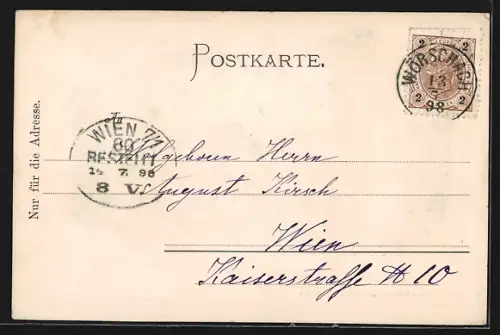 POSTKARTE.
2 2
WÖRSCHACH
13
7
98
2 2
Nur für die Adresse.
An
WIEN 7/1
60
BESTELLT
14 7. 98
8 V.
Wolgeboren Herrn
August Kirsch
Wien
Kaiserstraße # 10